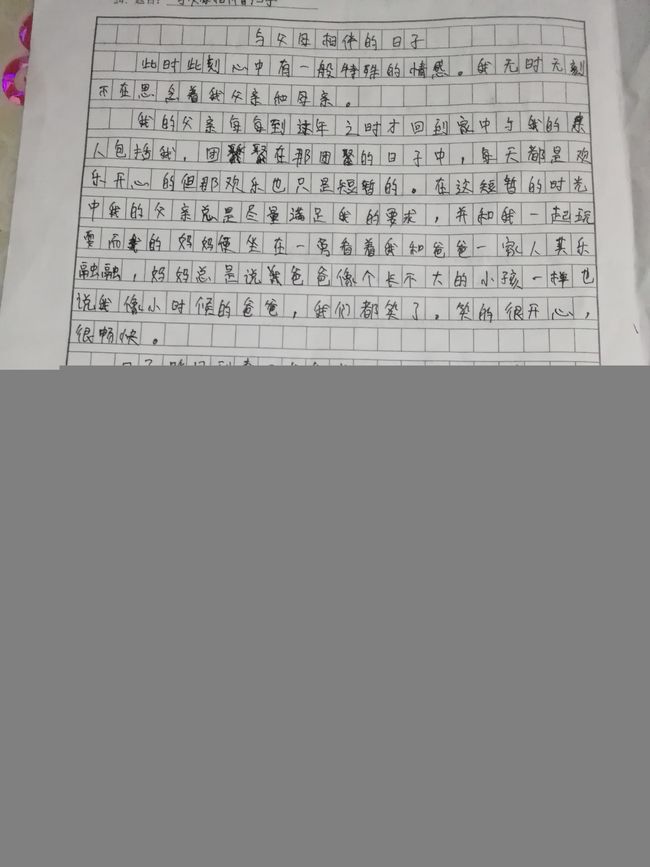 与父母相伴的日子
此时此刻心中有一般特殊的情感。我无时无刻
不在思念着我父亲和母亲。
我的父亲每每到过年之时才回到家中与我的亲
人包括我,团聚在那团聚的日子中,每天都是欢
乐开心的但那欢乐也只是短暂的。在这短暂的时光
中我的父亲总是尽量满足我的要求,并和我一起玩
耍而我的妈妈便坐在一旁看着我和爸爸一家人其乐
融融,妈妈总是说我爸爸像个长不大的小孩一样也
说我像小时候的爸爸,我们都笑了。笑的很开心,
很畅快。